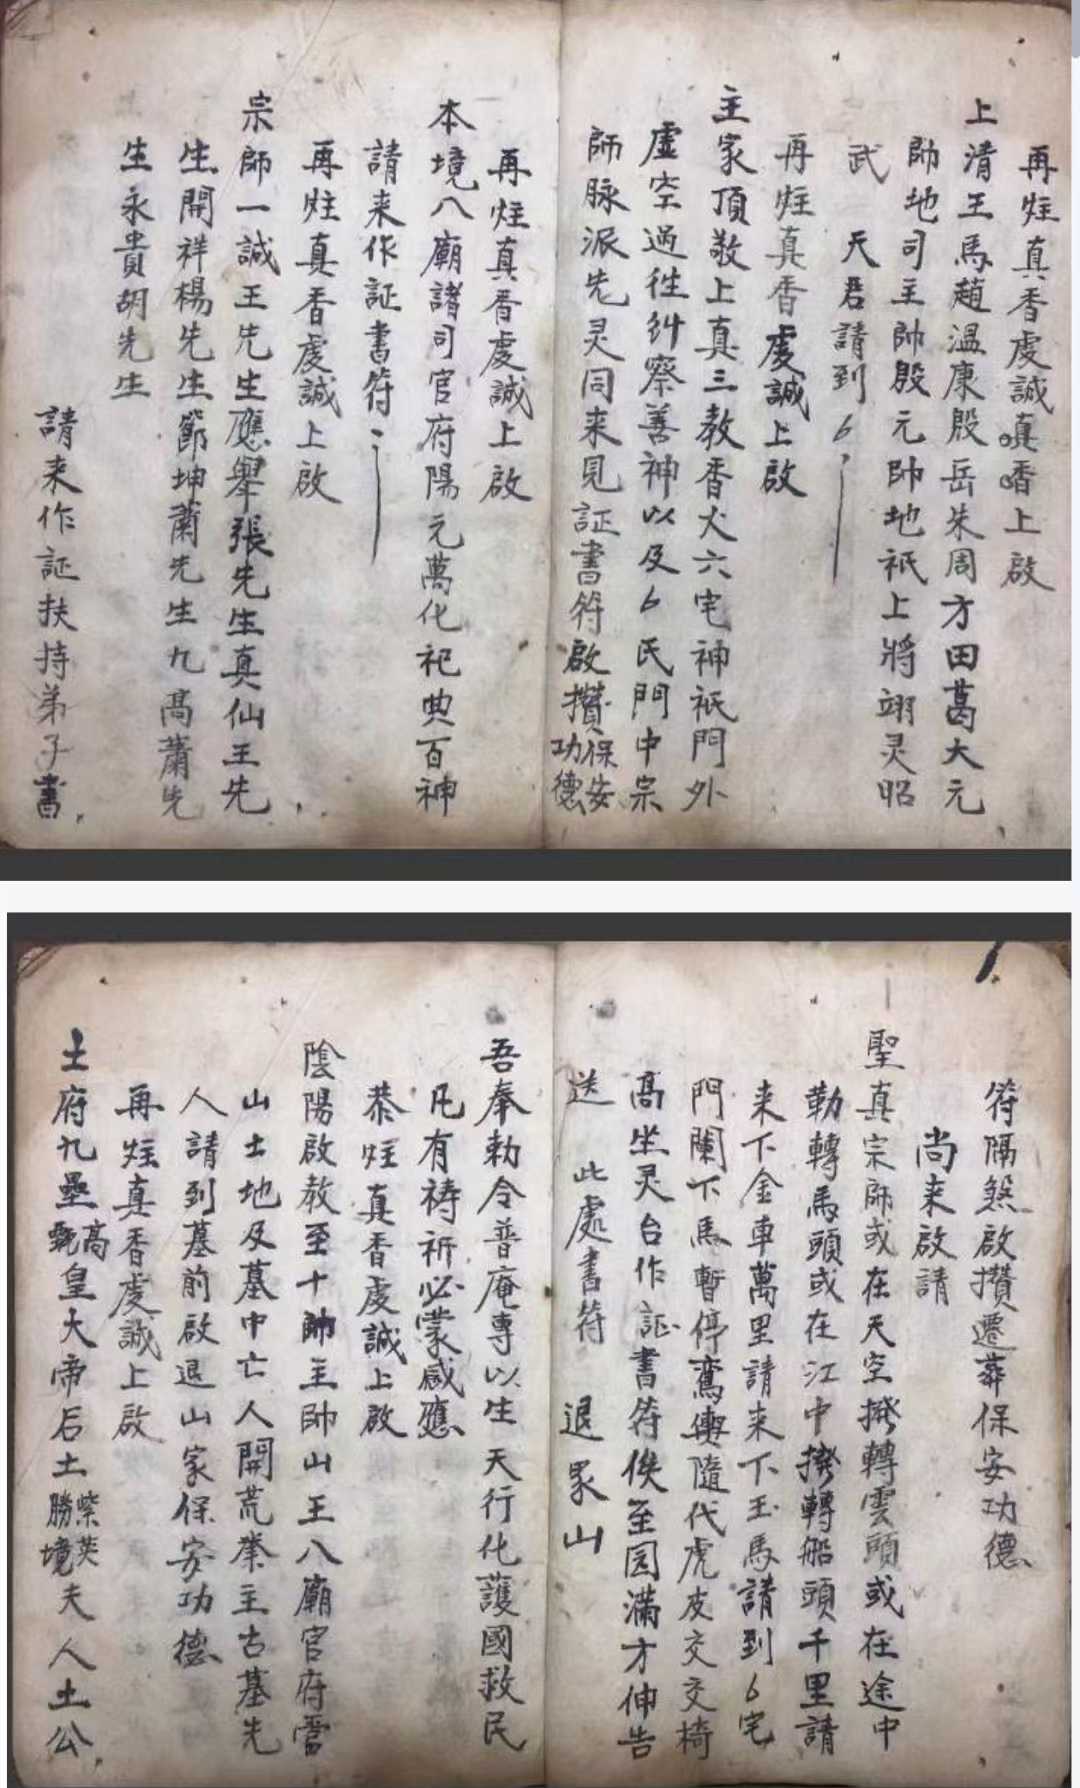 再炷真香虔誠真香上啟
上清王馬趙温康殷岳朱周方田葛大元
帥地司主帥殷元帥地祇上將翊灵昭
武　天君請到
再炷真香虔誠上啟
主家頂敬上真三教香火六宅神祇門外
虛空過往糾察善神以及　氏門中宗
師脉派先灵同来見証書符啟攢保安功德
再炷真香虔誠上啟
本境八廟諸司官府陽元萬化祀典百神
請来作証書符
再炷真香虔誠上啟
宗師一誠王先生應舉張先生真仙王先
生開祥楊先生節坤蕭先生九高蕭先
生永貴胡先生
請来作証扶持弟子書
符隔煞啟攢遷葬保安功德
尚来啟請
聖真宗師或在天空撥轉雲頭或在途中
勒轉馬頭或在江中撥轉船頭千里請
来下金車萬里請来下玉馬請到　宅
門闌下馬暫停鸞輿隨代虎皮交交椅
高坐灵台作証書符俟至园滿才伸告
送　此處書符　退冢山
吾奉勅令普庵專以生天行化護國救民
凡有禱祈必蒙感應
恭炷真香虔誠上啟
陰陽啟教至十帥主帥山王八廟官府當
山土地及墓中亡人開荒業主古墓先
人請到墓前啟退山家保安功德
再炷真香虔誠上啟
土府九壘高皇大帝后土紫英勝境夫人土公